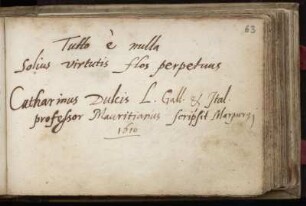 63
Tutto è nulla
Solius virtutis flos perpetuus
Catharinus Dulcis L. Gall. & Ital.
professor Mauritianus scripsit Marpurg
1610